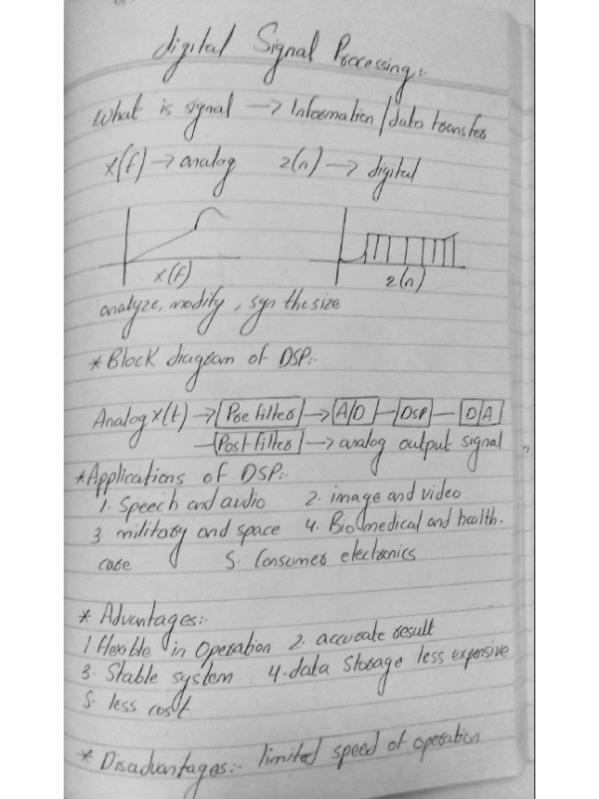 digital Signal Processing:-
What is signal → Information/data transfer
x(f) → analog 2(n) → digital
x(f) 2(n)
analyze, modify, synthesize
* Block diagram of DSP:-
Analog x(t) → Pre filter → A/D - DSP - D/A
- Post filter → analog output signal
* Applications of DSP:-
1. Speech and audio 2. image and video
3. military and space 4. Biomedical and health-
care 5. Consumer electronics
* Advantages:-
1. flexible in Operation 2. accurate result
3. Stable system 4. data Storage less expensive
5. less cost
* Disadvantages:- limited speed of operation